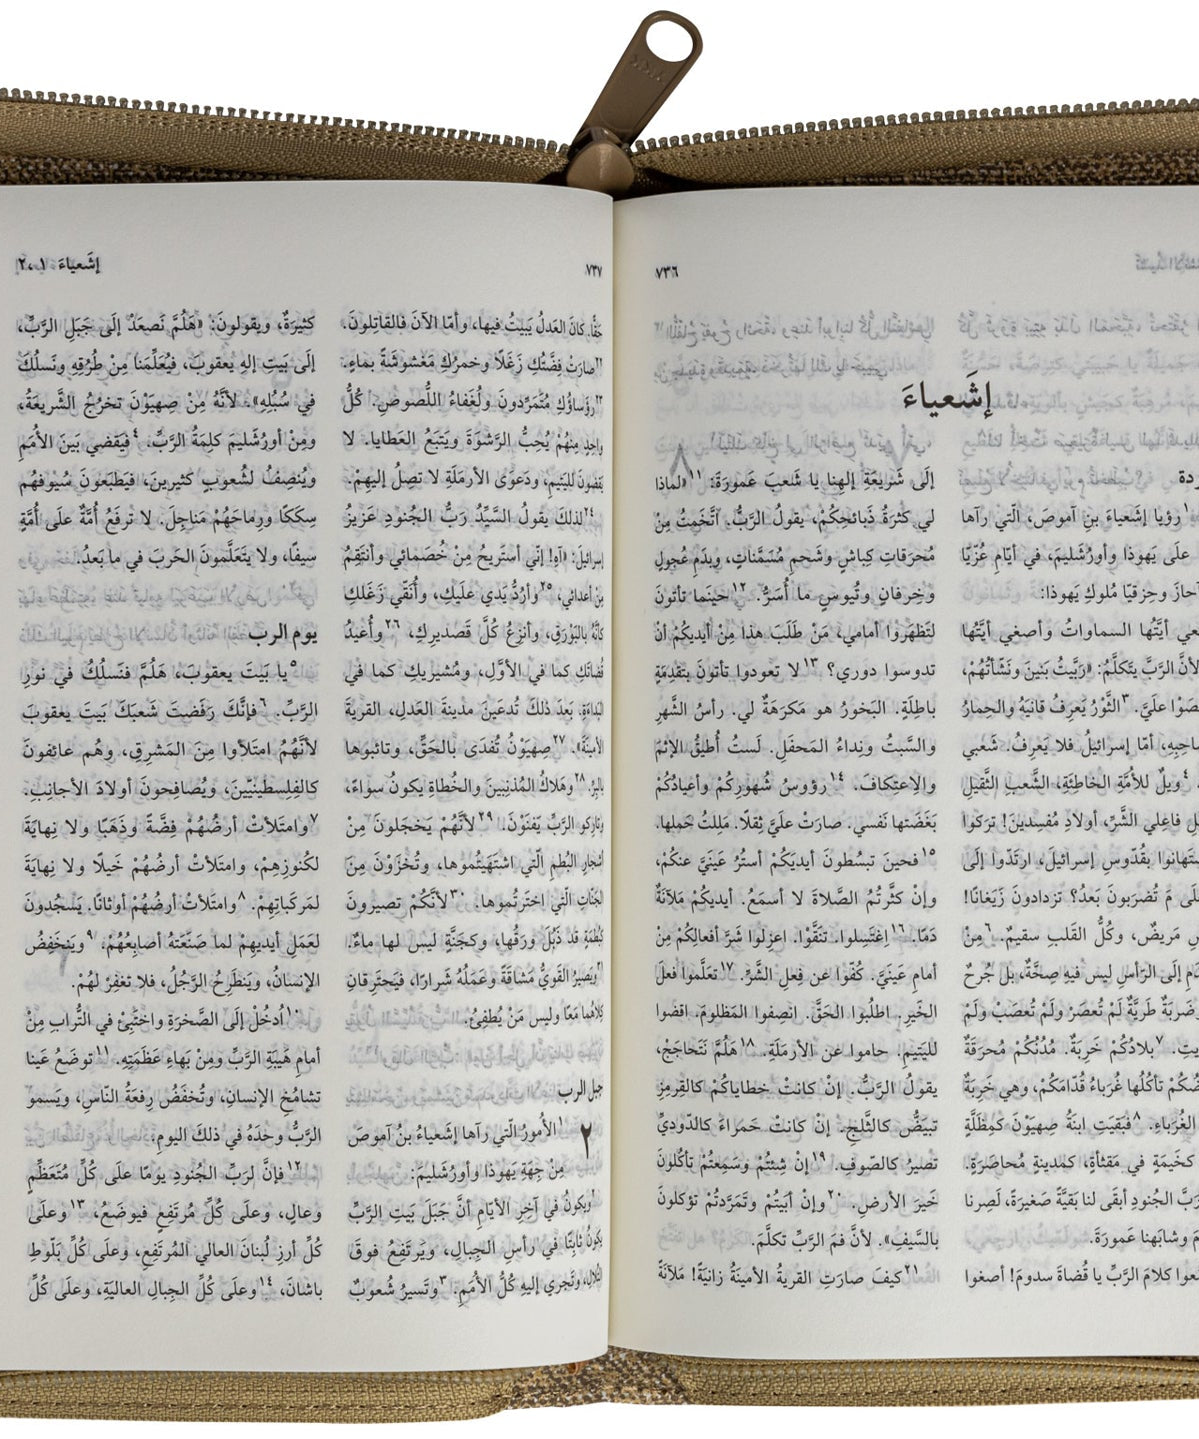 ٧٣٦
إشَعياءَ
١رؤيا إشَعياءَ بنِ آموصَ، الّتي رآها
علَى يَهوذا وأورُشَليمَ، في أيّامِ عُزّيّا
آحازَ وحِزقيّا مُلوكِ يَهوذا:
أيَّتُها السماواتُ وأصغي أيَّتُها
لأنَّ الرَّبَّ يتَكلَّمُ: «رَبَّيتُ بَنينَ ونَشّأتُهُمْ،
علَيَّ. ٣الثَّوْرُ يَعرِفُ قانيَهُ والحِمارُ
أمّا إسرائيلُ فلا يَعرِفُ. شَعبي
٤ويلٌ للأُمَّةِ الخاطِئَةِ، الشَّعبِ الثَّقيلِ
فاعِلي الشَّرِّ، أولادِ مُفسِدينَ! ترَكوا
بقُدّوسِ إسرائيلَ، ارتَدّوا إلَى
مَ تُضرَبونَ بَعدُ؟ تزدادونَ زَيَغانًا!
مَريضٌ، وكُلُّ القَلبِ سقيمٌ. ٦مِنْ
إلَى الرّأسِ ليس فيهِ صِحَّةٌ، بل جُرحٌ
وضَربَةٌ طَريَّةٌ لَمْ تُعصَرْ ولَمْ تُعصَبْ ولَمْ
٧بلادُكُمْ خَرِبَةٌ. مُدُنُكُمْ مُحرَقَةٌ
تأكُلُها غُرَباءُ قُدّامَكُمْ، وهي خَرِبَةٌ
الغُرَباءِ. ٨فبَقيَتِ ابنَةُ صِهيَوْنَ كمِظَلَّةٍ
كخَيمَةٍ في مَقثأةٍ، كمدينةٍ مُحاصَرَةٍ.
رَبَّ الجُنودِ أبقَى لنا بَقيَّةً صَغيرَةً، لَصِرنا
وشابَهنا عَمورَةَ.
كلامَ الرَّبِّ يا قُضاةَ سدومَ! أصغوا
إلَى شَريعَةِ إلهِنا يا شَعبَ عَمورَةَ: ١١«لماذا
لي كثرَةُ ذَبائحِكُمْ، يقولُ الرَّبُّ. اتَّخَمتُ مِنْ
مُحرَقاتِ كِباشٍ وشَحمِ مُسَمَّناتٍ، وبدَمِ عُجولٍ
وخِرفانٍ وتُيوسٍ ما أُسَرُّ. ١٢حينَما تأتونَ
لتَظهَروا أمامي، مَنْ طَلَبَ هذا مِنْ أيديكُمْ أنْ
تدوسوا دوري؟ ١٣لا تعودوا تأتونَ بتَقدِمَةٍ
باطِلَةٍ. البَخورُ هو مَكرَهَةٌ لي. رأسُ الشَّهرِ
والسَّبتُ ونِداءُ المَحفَلِ. لَستُ أُطيقُ الإثمَ
والِاعتِكافَ. ١٤رؤوسُ شُهورِكُمْ وأعيادُكُمْ
بَغَضَتها نَفسي. صارَتْ علَيَّ ثِقلًا. مَلِلتُ حَملها.
١٥فحينَ تبسُطونَ أيديَكُمْ أستُرُ عَينَيَّ عنكُمْ،
وإنْ كثَّرتُمُ الصَّلاةَ لا أسمَعُ. أيديكُمْ مَلآنَةٌ
دَمًا. ١٦اِغتَسِلوا. تنَقَّوْا. اعزِلوا شَرَّ أفعالِكُمْ مِنْ
أمامِ عَينَيَّ. كُفّوا عن فِعلِ الشَّرِّ. ١٧تعَلَّموا فعلَ
الخَيرِ. اطلُبوا الحَقَّ. انصِفوا المَظلومَ. اقضوا
لليَتيمِ. حاموا عن الأرمَلَةِ. ١٨هَلُمَّ نَتَحاجَجْ،
يقولُ الرَّبُّ. إنْ كانتْ خطاياكُمْ كالقِرمِزِ
تبيَضُّ كالثَّلجِ. إنْ كانتْ حَمراءَ كالدّوديِّ
تصيرُ كالصّوفِ. ١٩إنْ شِئتُمْ وسَمِعتُمْ تأكُلونَ
خَيرَ الأرضِ. ٢٠وإنْ أبَيتُمْ وتَمَرَّدتُمْ تؤكَلونَ
بالسَّيفِ». لأنَّ فمَ الرَّبِّ تكلَّمَ.
٢١كيفَ صارَتِ القريةُ الأمينَةُ زانيَةً! مَلآنَةً
إشَعياءَ ١، ٢
٧٣٧
حَقًّا. كانَ العَدلُ يَبيتُ فيها، وأمّا الآنَ فالقاتِلونَ.
٢٢صارَتْ فِضَّتُكِ زَغَلًا وخمرُكِ مَغشوشَةً بماءٍ.
٢٣رؤَساؤُكِ مُتَمَرِّدونَ ولُغَفاءُ اللُّصوصِ. كُلُّ
واحِدٍ مِنهُمْ يُحِبُّ الرَّشوَةَ ويَتبَعُ العَطايا. لا
يَقضونَ لليَتيمِ، ودَعوَى الأرمَلَةِ لا تصِلُ إليهِمْ.
٢٤لذلكَ يقولُ السَّيِّدُ رَبُّ الجُنودِ عَزيزُ
إسرائيلَ: «آهِ! إنّي أستَريحُ مِنْ خُصَمائي وأنتَقِمُ
مِنْ أعدائي، ٢٥وأرُدُّ يَدي علَيكِ، وأُنَقّي زَغَلكِ
كأنَّهُ بالبَوْرَقِ، وأنزِعُ كُلَّ قَصديرِكِ، ٢٦وأُعيدُ
قُضاتَكِ كما في الأوَّلِ، ومُشيريكِ كما في
البَداءَةِ. بَعدَ ذلكَ تُدعَينَ مدينةَ العَدلِ، القريةَ
الأمينَةَ». ٢٧صِهيَوْنُ تُفدَى بالحَقِّ، وتائبوها
بالبِرِّ. ٢٨وهَلاكُ المُذنِبينَ والخُطاةِ يكونُ سواءً،
وتارِكو الرَّبِّ يَفنَوْنَ. ٢٩لأنَّهُمْ يَخجَلونَ مِنْ
أشجارِ البُطمِ الّتي اشتَهَيتُموها، وتُخزَوْنَ مِنَ
الجَنّاتِ الّتي اختَرتُموها. ٣٠لأنَّكُمْ تصيرونَ
كبُطمَةٍ قد ذَبُلَ ورَقُها، وكجَنَّةٍ ليس لها ماءٌ.
٣١ويَصيرُ القَويُّ مَشاقَةً وعَمَلُهُ شَرارًا، فيَحتَرِقانِ
كِلاهُما مَعًا وليس مَنْ يُطفِئُ.
جبل الرب
٢ ١الأُمورُ الّتي رآها إشَعياءُ بنُ آموصَ
مِنْ جِهَةِ يَهوذا وأورُشَليمَ:
٢ويكونُ في آخِرِ الأيّامِ أنَّ جَبَلَ بَيتِ الرَّبِّ
يكونُ ثابِتًا في رأسِ الجِبالِ، ويَرتَفِعُ فوقَ
التِّلالِ، وتَجري إليهِ كُلُّ الأُمَمِ. ٣وتَسيرُ شُعوبٌ
كثيرَةٌ، ويقولونَ: «هَلُمَّ نَصعَدْ إلَى جَبَلِ الرَّبِّ،
إلَى بَيتِ إلهِ يعقوبَ، فيُعَلِّمَنا مِنْ طُرُقِهِ ونَسلُكَ
في سُبُلِهِ». لأنَّهُ مِنْ صِهيَوْنَ تخرُجُ الشَّريعَةُ،
ومِنْ أورُشَليمَ كلِمَةُ الرَّبِّ. ٤فيَقضي بَينَ الأُمَمِ
ويُنصِفُ لشُعوبٍ كثيرينَ، فيَطبَعونَ سُيوفَهُم
سِكَكًا ورِماحَهُمْ مَناجِلَ. لا ترفَعُ أُمَّةٌ علَى أُمَّةٍ
سيفًا، ولا يتَعَلَّمونَ الحَربَ في ما بَعدُ.
يوم الرب
٥يا بَيتَ يعقوبَ، هَلُمَّ فنَسلُكُ في نورِ
الرَّبِّ. ٦فإنَّكَ رَفَضتَ شَعبَكَ بَيتَ يعقوبَ
لأنَّهُمُ امتَلأوا مِنَ المَشرِقِ، وهُم عائفونَ
كالفِلِسطينيّينَ، ويُصافِحونَ أولادَ الأجانِبِ.
٧وامتَلأتْ أرضُهُمْ فِضَّةً وذَهَبًا ولا نِهايَةَ
لكُنوزِهِمْ، وامتَلأتْ أرضُهُمْ خَيلًا ولا نِهايَةَ
لمَركَباتِهِمْ. ٨وامتَلأتْ أرضُهُمْ أوثانًا. يَسجُدونَ
لعَمَلِ أيديهِمْ لما صَنَعَتهُ أصابِعُهُمْ، ٩ويَنخَفِضُ
الإنسانُ، ويَنطَرِحُ الرَّجُلُ، فلا تغفِرْ لهُمْ.
١٠اُدخُلْ إلَى الصَّخرَةِ واختَبِئْ في التُّرابِ مِنْ
أمامِ هَيبَةِ الرَّبِّ ومِنْ بَهاءِ عَظَمَتِهِ. ١١توضَعُ عَينا
تشامُخِ الإنسانِ، وتُخفَضُ رِفعَةُ النّاسِ، ويَسمو
الرَّبُّ وحدَهُ في ذلكَ اليومِ.
١٢فإنَّ لرَبِّ الجُنودِ يومًا علَى كُلِّ مُتَعَظِّمٍ
وعالٍ، وعلَى كُلِّ مُرتَفِعٍ فيوضَعُ، ١٣وعلَى
كُلِّ أرزِ لُبنانَ العالي المُرتَفِعِ، وعلَى كُلِّ بَلّوطِ
باشانَ، ١٤وعلَى كُلِّ الجِبالِ العاليَةِ، وعلَى كُلِّ